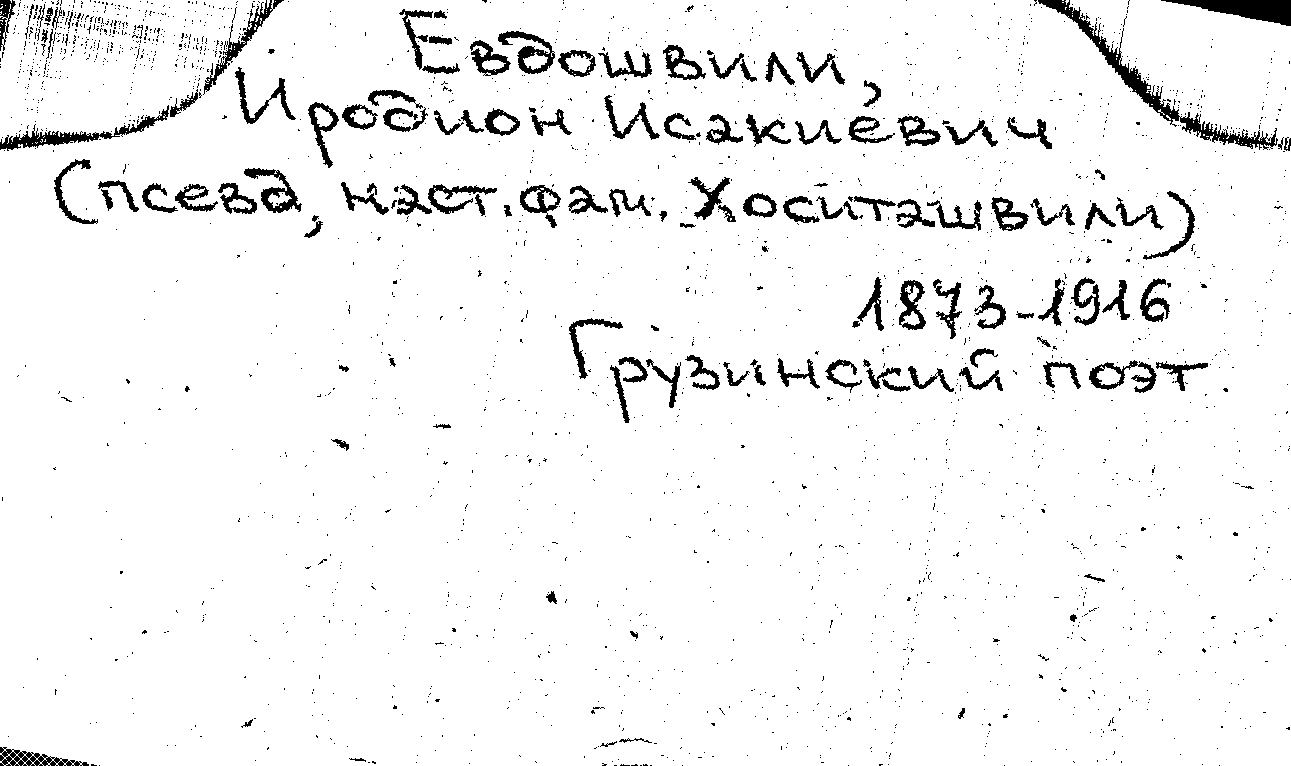 Евдошвили,
Иродион Исакиевич
(псевд, наст. фам. Хоситашвили)
1873-1916
Грузинский поэт.